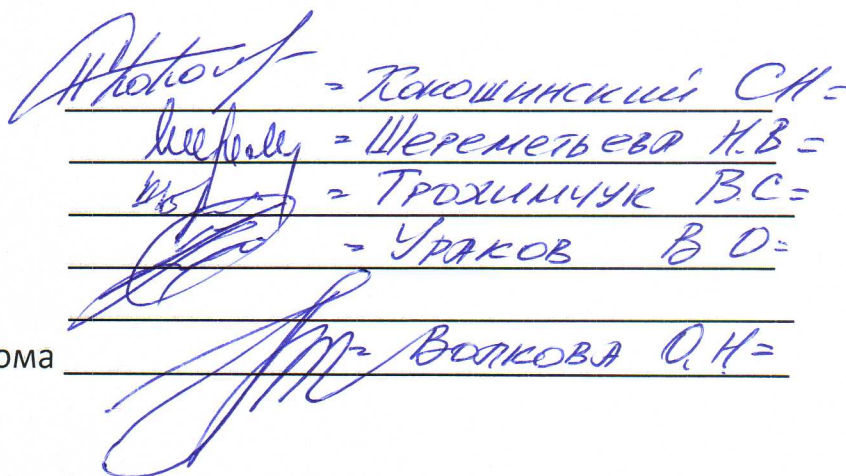 = Кокошинский СН =
= Шереметьева Н.В =
= Трохимчук В.С =
= Ураков В О =
ома = Волкова О.Н =